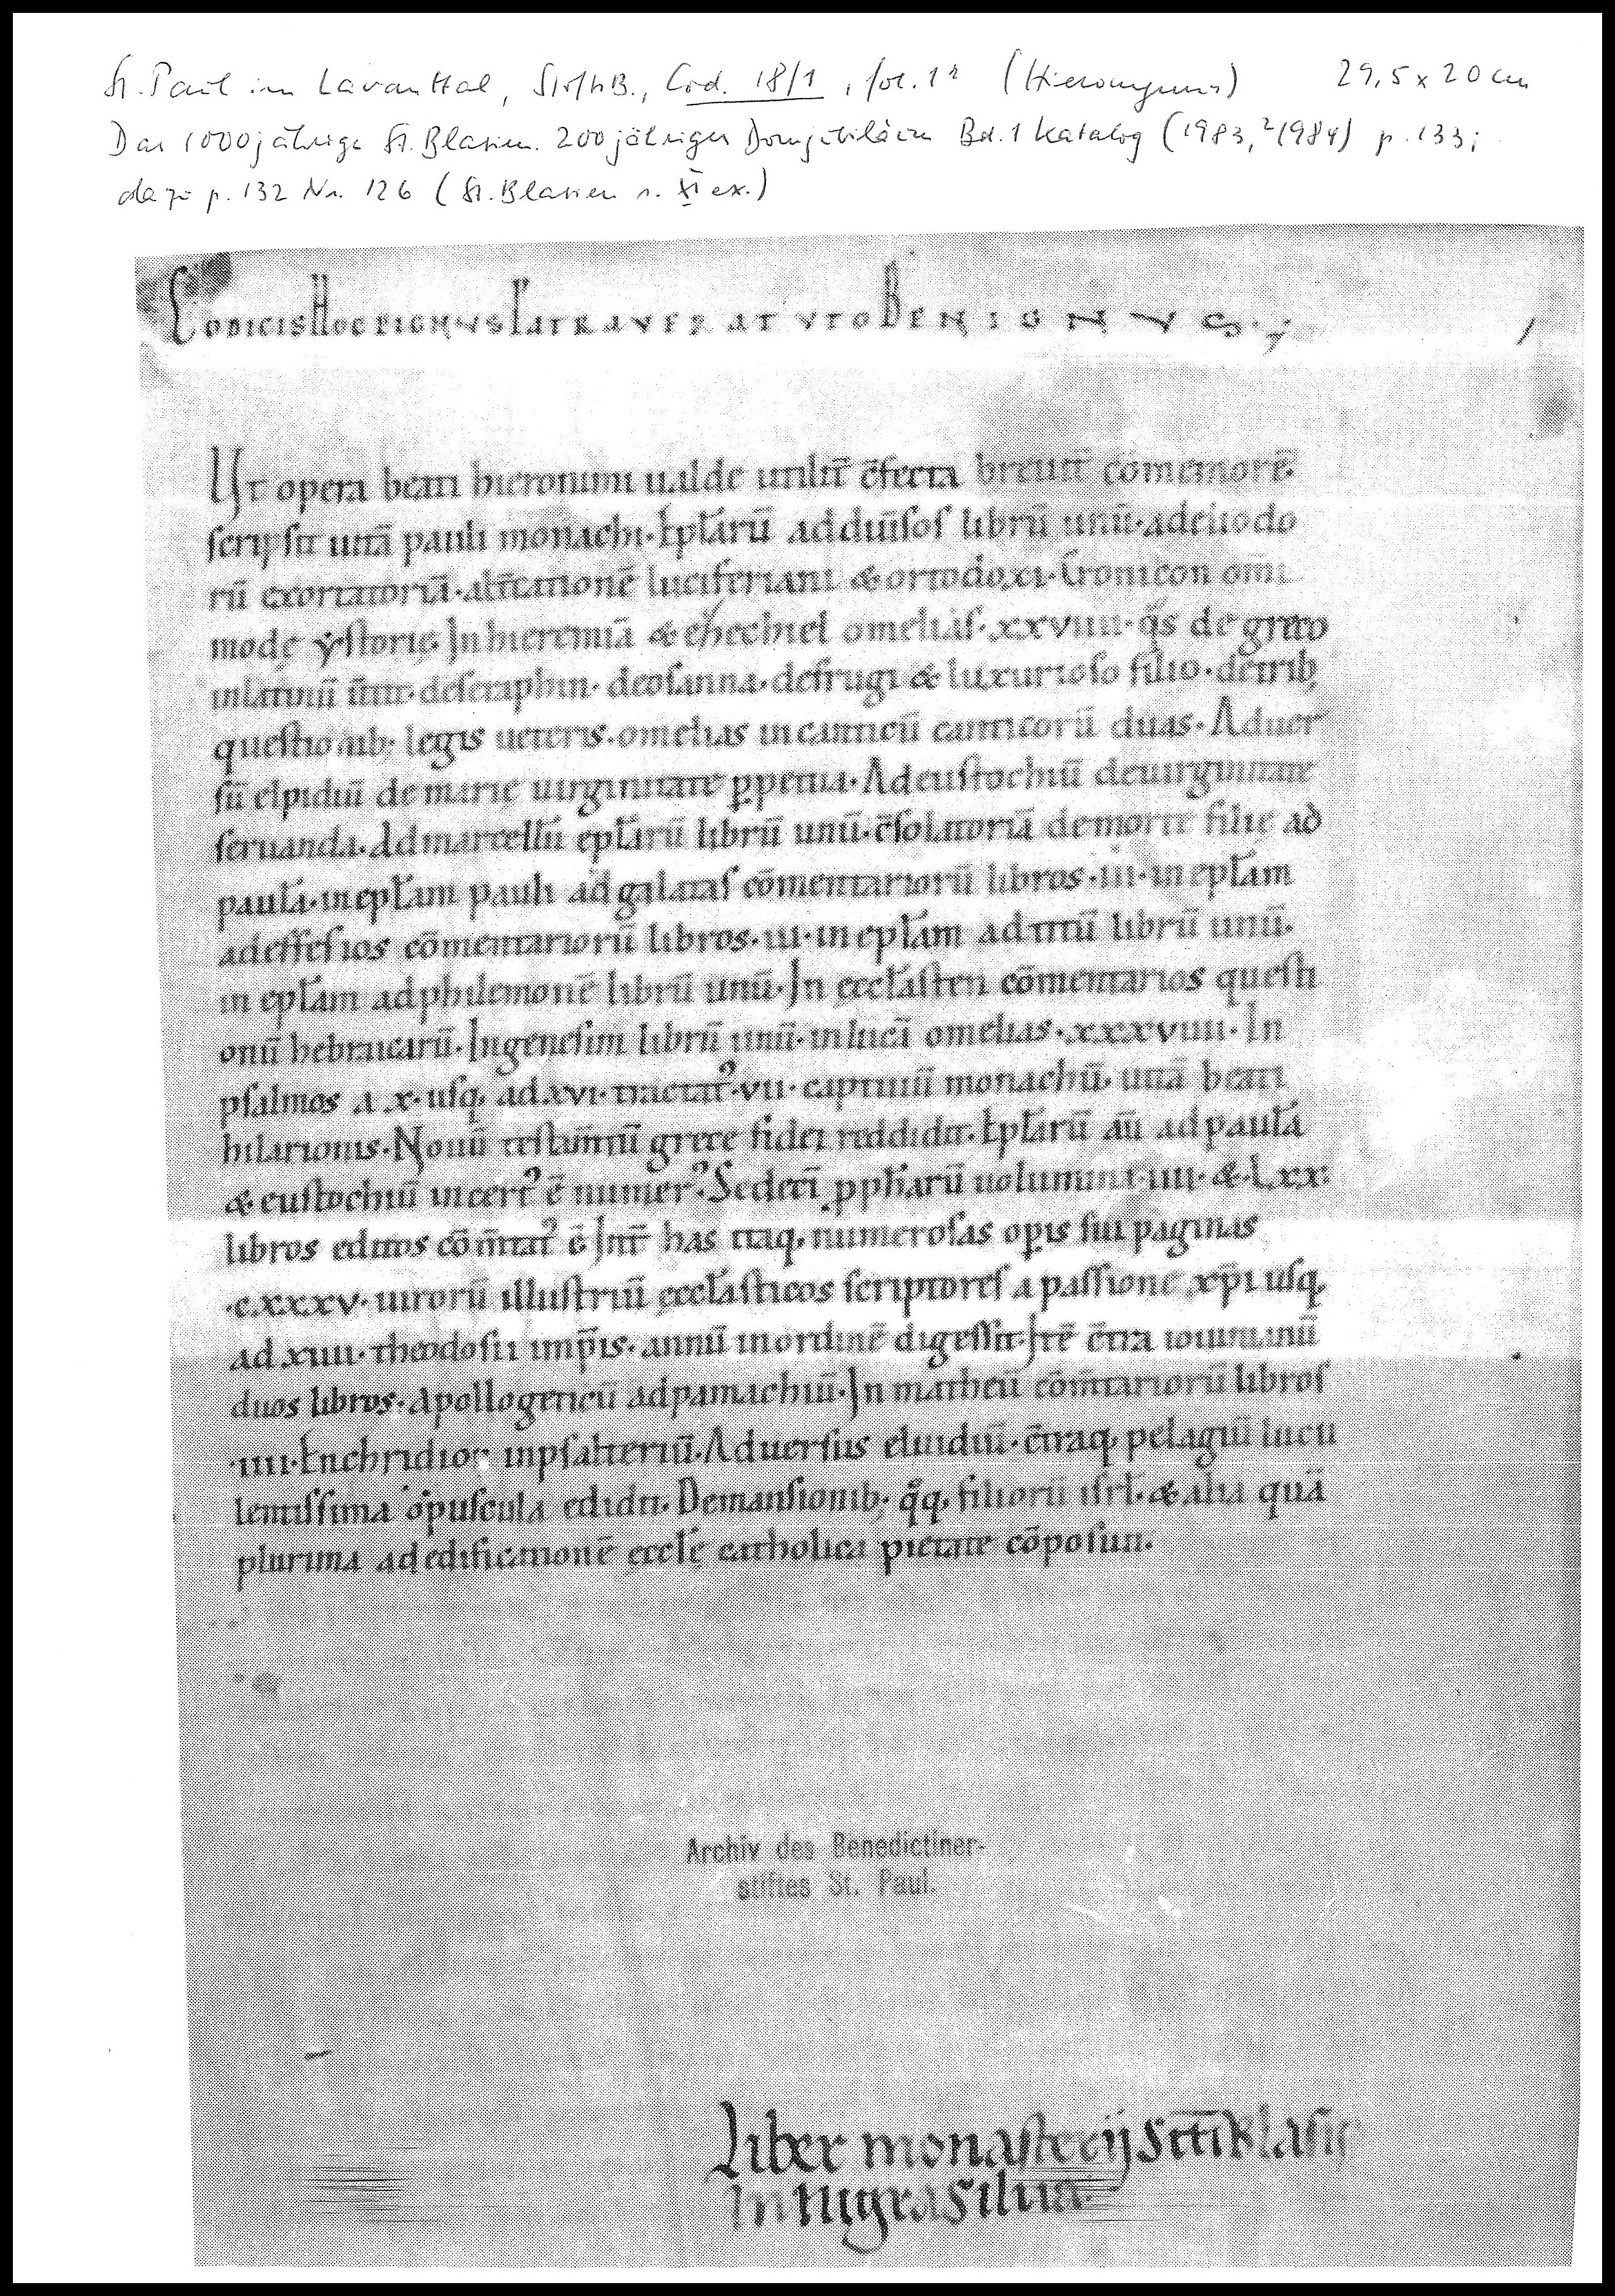 St. Paul im Lavanttal, StiftsB., Cod. 18/1, fol. 1r (Hieronymus) 29,5 x 20 cm
Das 1000jährige St. Blasien. 200jähriges Domjubiläum Bd. 1 Katalog (1983, ²1984) p. 133;
dazu p. 132 Nr. 126 (St. Blasien s. XI ex.)
CODICIS HOC PIGNUS PATRAVERAT UTO BENIGNUS.
1
Ut opera beati hieronimi ualde utilit̄ c̄fecta breuit̄ cōmemorē.
scripsit uitā pauli monachi. Epl̄arū ad diūsos librū unū. ad eliodo
rū exortatoriā. alt̄cationē luciferiani & ortodoxi. Cronicon om̄i
modę ẏstorię. In hieremiā & ehzechiel omelias. xxviiii. q̄s de greco
in latinū ūtit. de seraphin. de osanna. de frugi & luxurioso filio. de trib;
questionib; legis ueteris. omelias in canticū canticorū duas. Aduer
sū elpidiū de marie uirginitate ꝑpetua. Ad eustochiū de uirginitate
seruanda. Ad marcellā epl̄arū librū unū. c̄solatoriā de morte filie ad
paulā. in epl̄am pauli ad galatas cōmentariorū libros. iii. in epl̄am
ad effesios cōmentariorū libros. iii. in epl̄am ad titū librū unū.
in epl̄am ad philemonē librū unū. In ęccl̄asten cōmentarios questi
onū hebraicarū. In genesim librū unū. in lucā omelias. xxxviiii. In
psalmos a x. usq; ad xvi. tractat᾽ vii. captiuū monachū. uitā beati
hilarionis. Nouū testam̄tū grece fidei reddidit. Epl̄arū aū ad paulā
& eustochiū incert᾽ ē numer᾽. Sedeci p̄ph̄arū uolumina. iiii. & Lxx.
libros editos cōm̄tat᾽ ē. Int̄ has itaq; numerosas opis sui paginas
.cxxxv. uirorū illustriū ęccl̄asticos scriptores a passione xp̄i usq;
ad xiiii. theodosii imp̄is. annū in ordinē digessit. Itē c̄tra iouinianū
duos libros. Apollogeticū ad pamachiū. In matheū cōm̄tariorū libros
.iiii. Enchridion in psalteriū. Aduersus eluidiū. c̄traq; pelagiū lucu
lentissima opuscula edidit. De mansionib; q̊q; filiorū isrl̄. & alia quā
plurima ad edificationē ęccl̄ę catholica pietate cōposuit.
Archiv des Benedictiner-
stiftes St. Paul.
Liber monasterij sct̄i Blasij
In nigra silua.